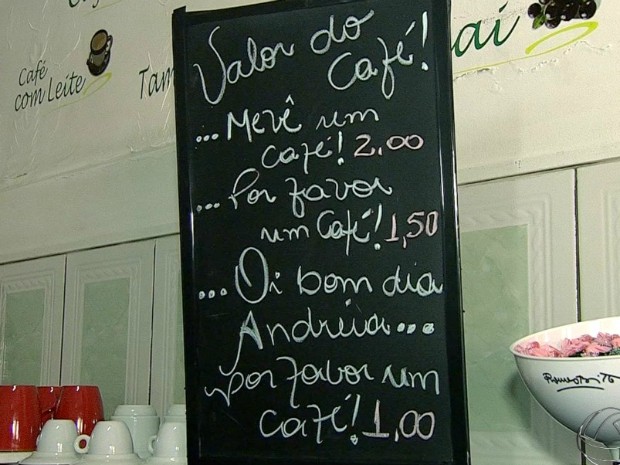 Café
com Leite
Tam
aí
Valor do
Café!
...Mevê um
café! 2,00
...Por favor
um Café! 1,50
...Oi bom dia
Andréia...
por favor um
café! 1,00